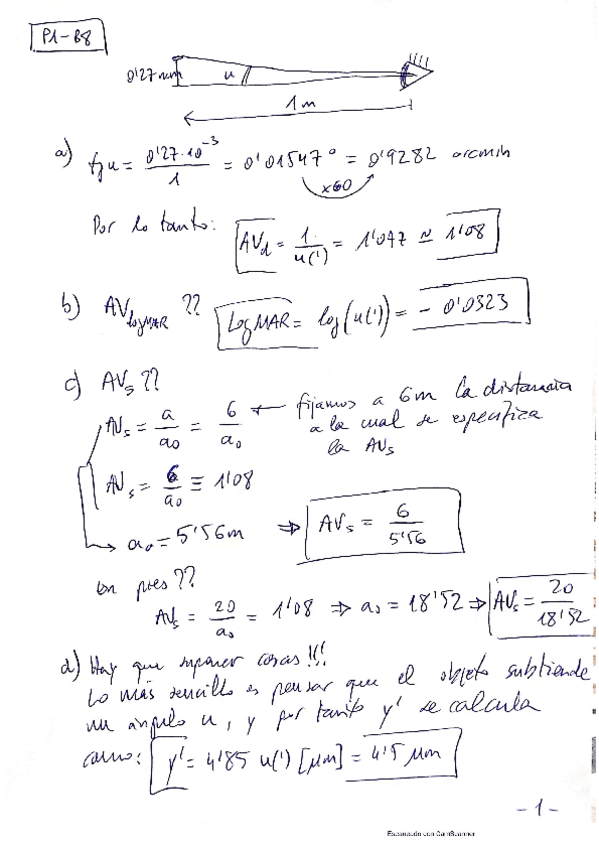 P1-B8
0'27 mm u
1m
a) tg u = 0'27·10⁻³/1 = 0'01547° = 0'9282 arcmin
x60
Por lo tanto: AVd = 1/u(') = 1'077 ≃ 1'08
b) AVlogMAR ?? LogMAR = log(u(')) = - 0'0323
c) AVs ??
AVs = a/a₀ = 6/a₀ ← fijamos a 6m la distancia
a la cual se especifica
la AVs
AVs = 6/a₀ ≡ 1'08
a₀ = 5'56m ⇒ AVs = 6/5'56
en pies ??
AVs = 20/a₀ = 1'08 ⇒ a₀ = 18'52 ⇒ AVs = 20/18'52
d) Hay que suponer cosas !!!
Lo más sencillo es pensar que el objeto subtiende
un ángulo u, y por tanto y' se calcula
como: y' = 4'85 u(') [μm] = 4'5 μm
-1-
Escaneado con CamScanner